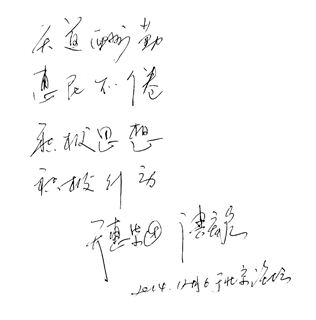 天道酬勤
惠民不倦
积极思想
积极行动
天惠集团
2014.12月6于北京